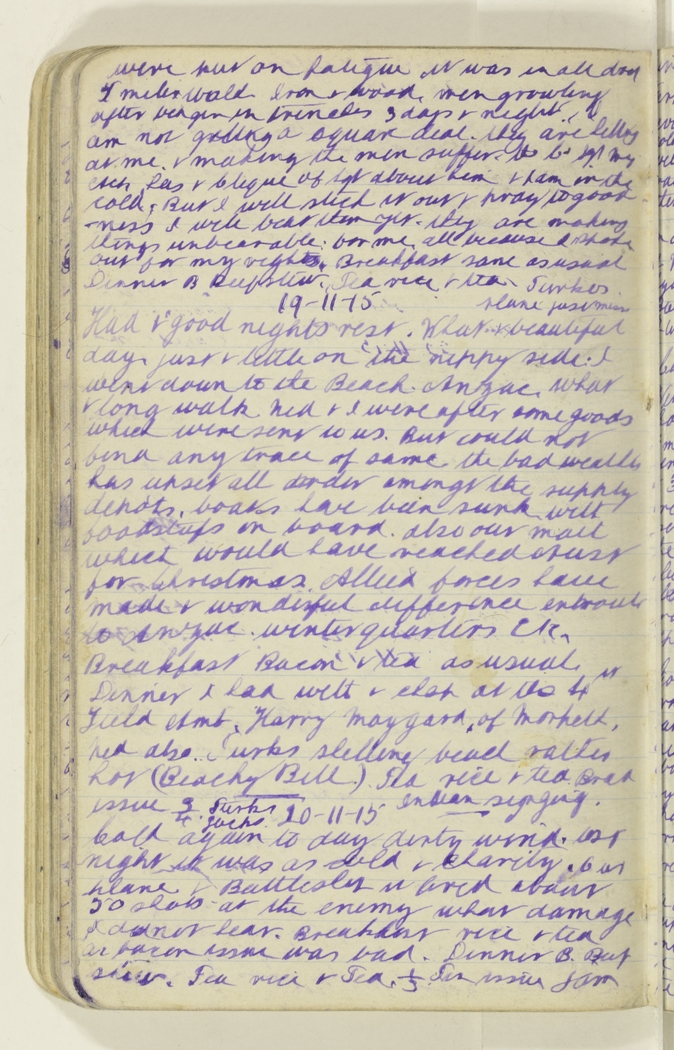 were put on fatigue it was in all day
I melin Wald Iron & wood, men growling
after being in trenches 3 days & night. I
am not getting a square deal. they are
at me. & making the men suffer. to my
about them & ham in the
cold. But I will stick it out & pray to good
-ness I will beat them yet. they are making
things unbearable. for me, all because I
out for my rights. Breakfast same as usual
Dinner B Beef stew. Tea rice & tea. Turkos
19-11-15 plane just
Had & good nights rest. What & beautiful
day, just & little on the nippy side. I
went down to the Beach. Anzac, what
& long walk ned & I were after some goods
which were sent to us. But could not
find any trace of same. the bad weather
has upset all order amongst the supply
depots. boats have been sunk with
foodstuffs on board. also our mail
which would have reached us just
for Christmas. Allied forces have
made & wonderful difference enroute
to Anzac. winter quarters Etc.
Breakfast Bacon & tea as usual.
Dinner I had with & chap at the 4th
Field Amb, Harry Maygard, of Morpeth,
ned also. Turks shelling beach rather
hot (Beachy Bill) Tea rice & tea.
issue 3/4 Turks 20-11-15 Indian singing.
jacks.
Cold again to day dirty wind. last
night it was as cold & Charity. Our
plane & Battleship it fired about
50 shots at the enemy what damage
I did not hear. Breakfast rice & tea
as bacon issue was bad. Dinner B. Beef
stew. Tea rice & Tea. 1/3 Tin issue Jam